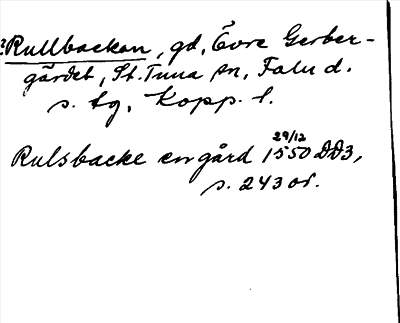 ?Rullbackan, gd, Övre Gerber-
gärdet, St. Tuna sn, Falu d.
s. tg, Kopp. l.
Rulsbacke en gård 1550 29/12 DD3,
s. 243 of.